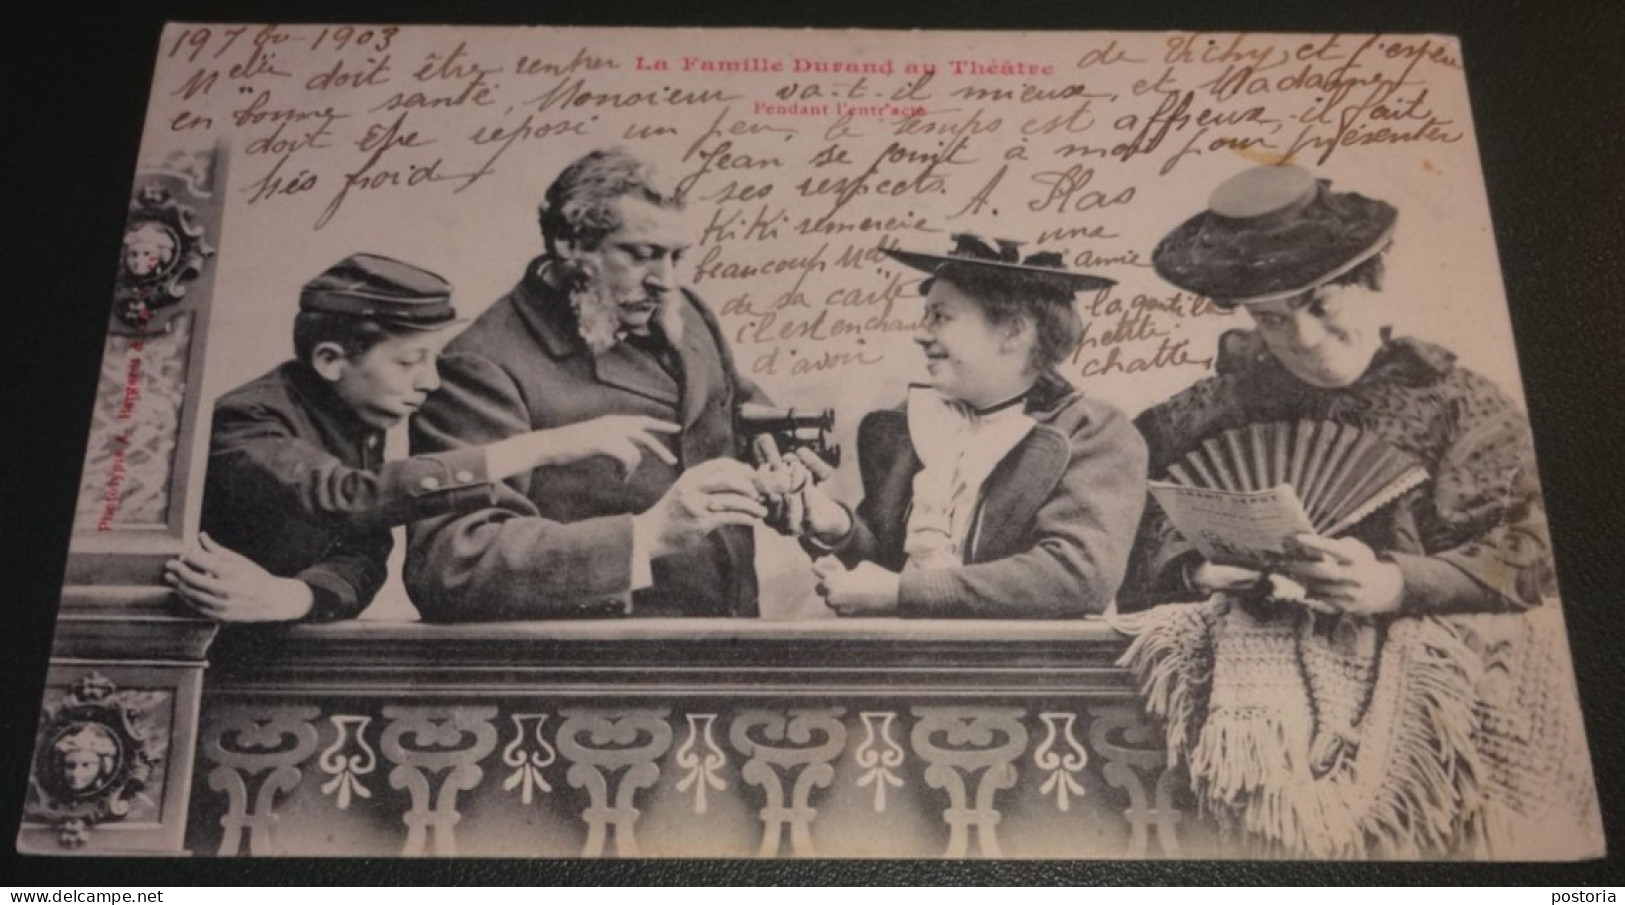 197bre 1903
La Famille Durand au Théâtre
Pendant l'entr'acte
Melle doit être rentrer de Vichy, et j'espère
en bonne santé, Monsieur va-t-il mieux, et Madame
doit être reposé un peu, le temps est affreux, il fait
très froid
Jean se joint à moi pour présenter
ses respects. A. Plas
Kiki remercie
beaucoup Melle
de sa carte
il est enchanté
d'avoir
une
amie
la gentille
petite
chatte,
Phototypie A. Bergeret &
GRAND DEPOT
postoria